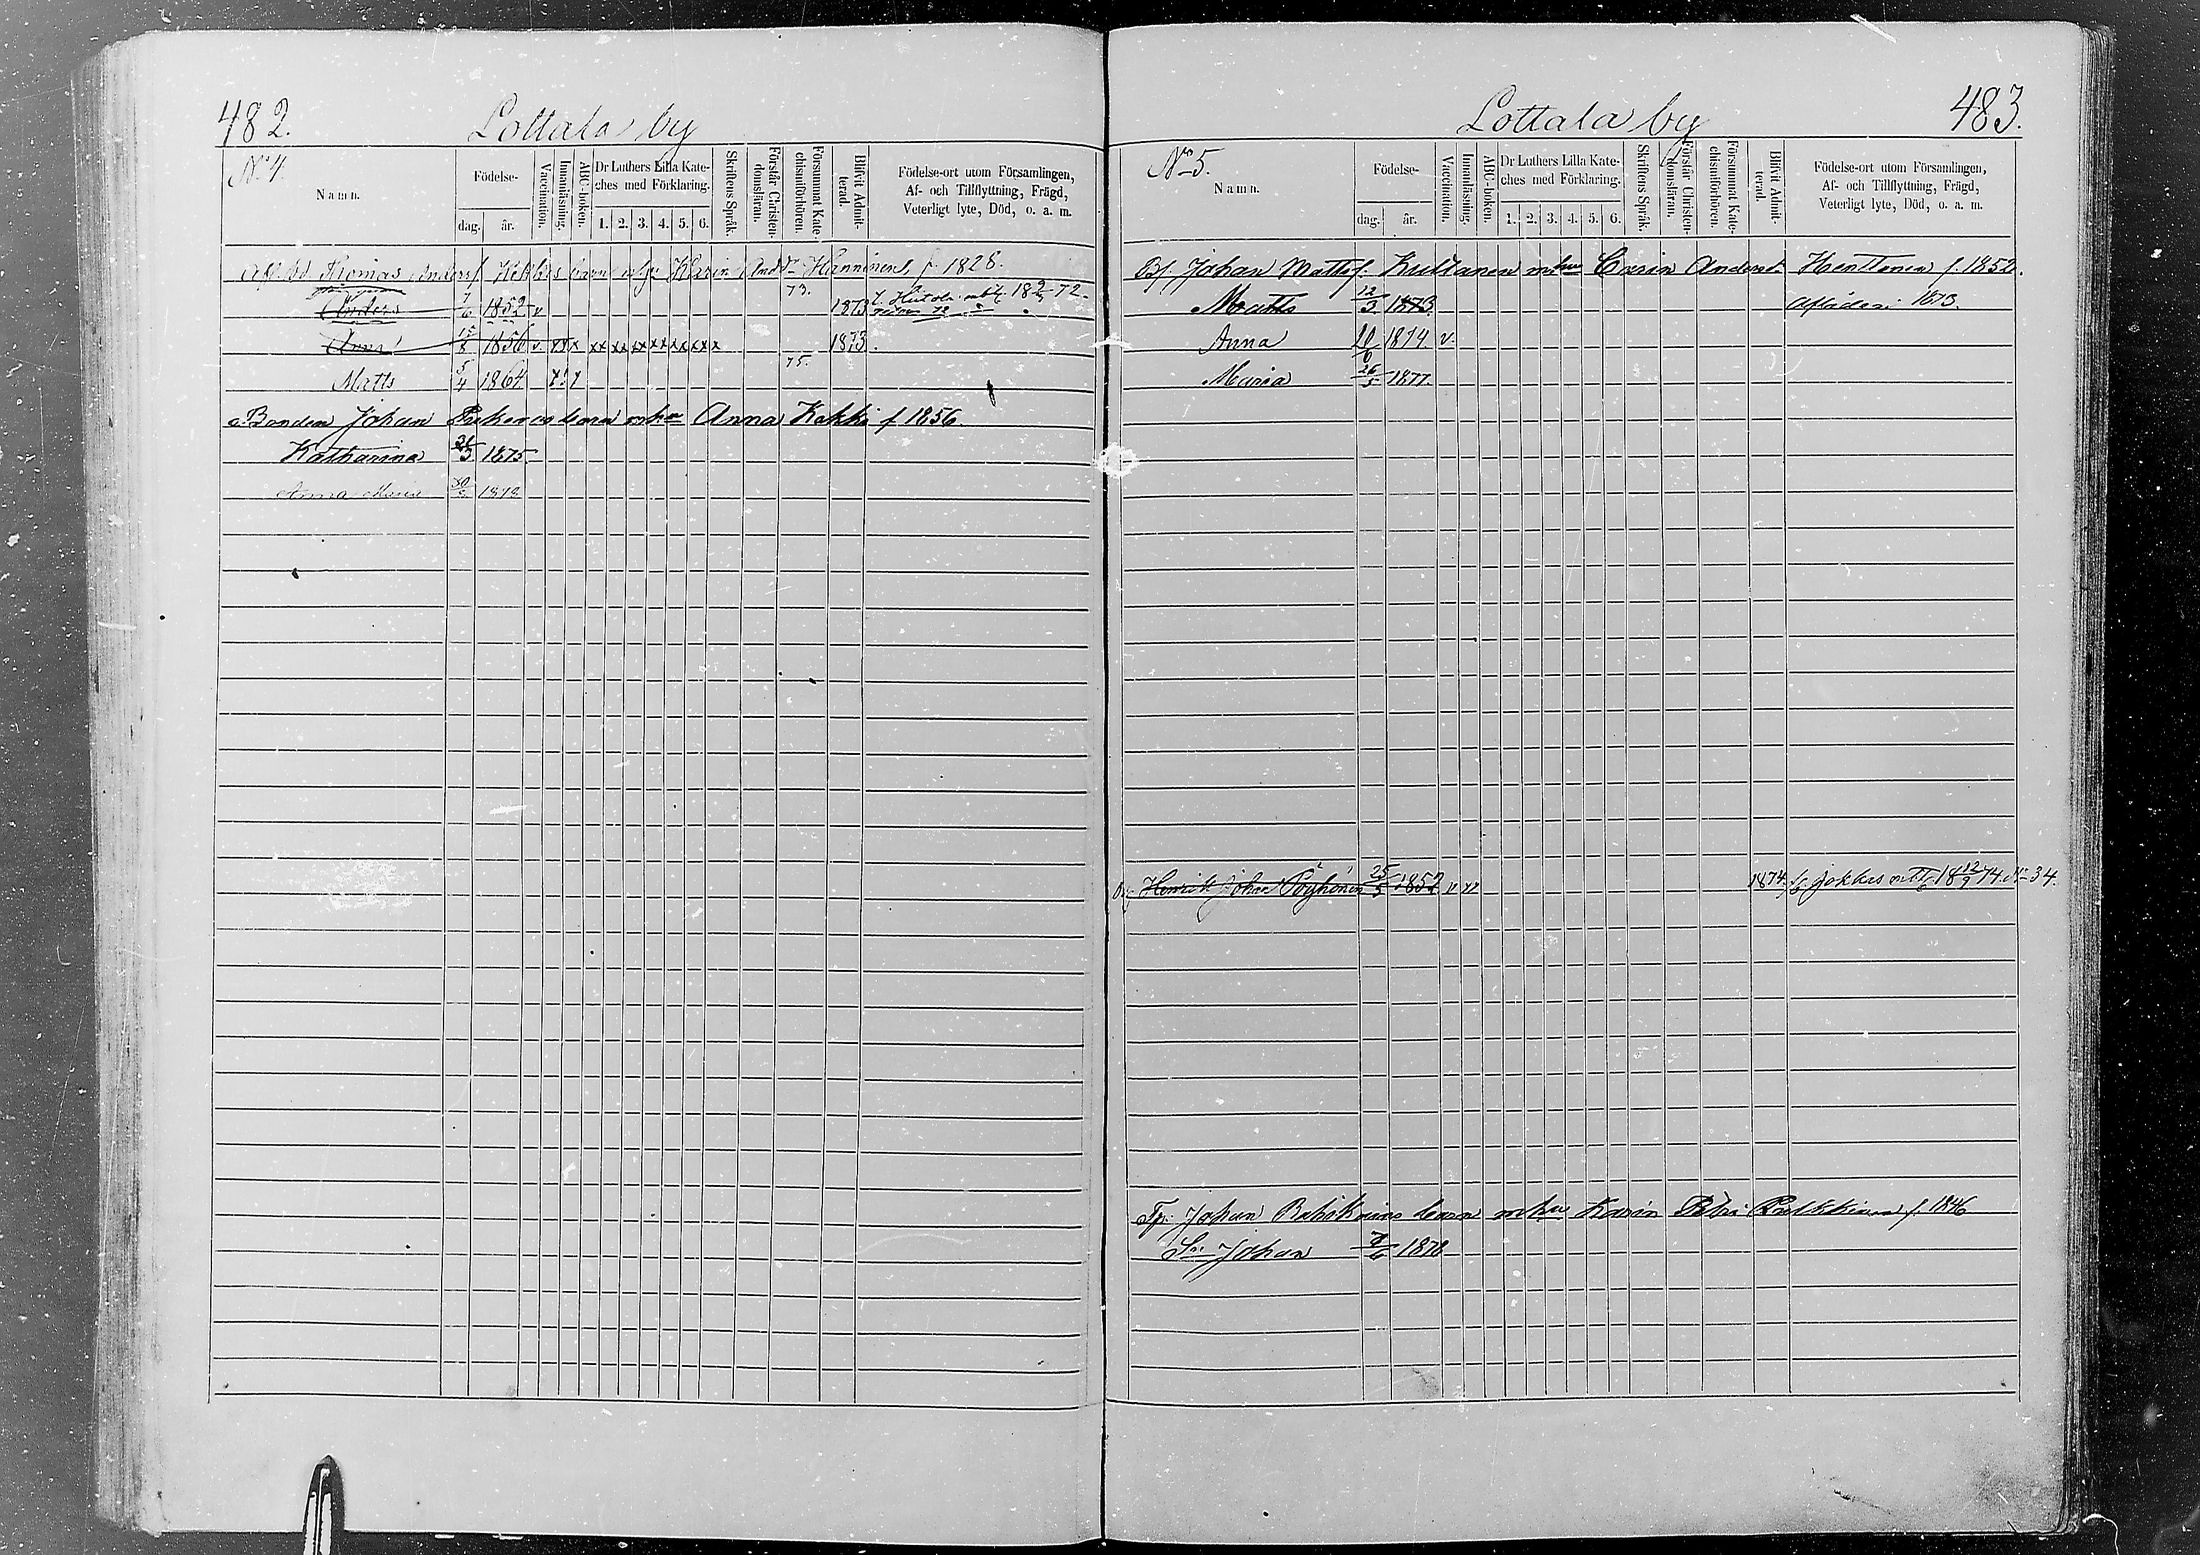 482.
Lottala by
No 4.
Namn.
Födelse-
dag. år.
Vaccination.
Innanläsning.
ABC-boken.
Dr Luthers Lilla Kate-
ches med Förklaring.
1. 2. 3. 4. 5. 6.
Skriftens Språk.
Förstår Christen-
domsläran.
Försummat Kate-
chismiförhören.
Blifvit Admit-
terad.
Födelse-ort utom Församlingen,
Af- och Tillflyttning, Frägd,
Veterligt lyte, Död, o. a. m.
Thomas Andersf. Kekkis barn m Karin And Hänninen f. 1828.
Anders 7/6 1852 v 73. 1873
Anna 15/8 1856 v. x x x x x x x x x x x x x x x 1873.
Matts 5/4 1864 75.
Bonden Johan barn mhu Anna Kekki f 1856
Katharina 21/3 1875.
Anna Maria 30/3 1878
483.
Lottala by
No 5.
Namn.
Födelse-
dag. år.
Vaccination.
Innanläsning.
ABC-boken.
Dr Luthers Lilla Kate-
ches med Förklaring.
1. 2. 3. 4. 5. 6.
Skriftens Språk.
Förstår Christen-
domsläran.
Försummat Kate-
chismiförhören.
Blifvit Admit-
terad.
Födelse-ort utom Församlingen,
Af- och Tillflyttning, Frägd,
Veterligt lyte, Död, o. a. m.
Bf. Johan Mattsf. Kuttanen mhu Carin Andersd. Henttonen f. 1852.
Matts 12/3 1873. Afliden 1873.
Anna 10/6 1874. v.
Maria 26/5 1877.
Henrik Johan Pöyhönen 25/5 1852 v 1874. Jokkas 18 12/9 74. No 34.
Johan barn mhu Karin Petri f. 1846
So. Johan 7/6 1878